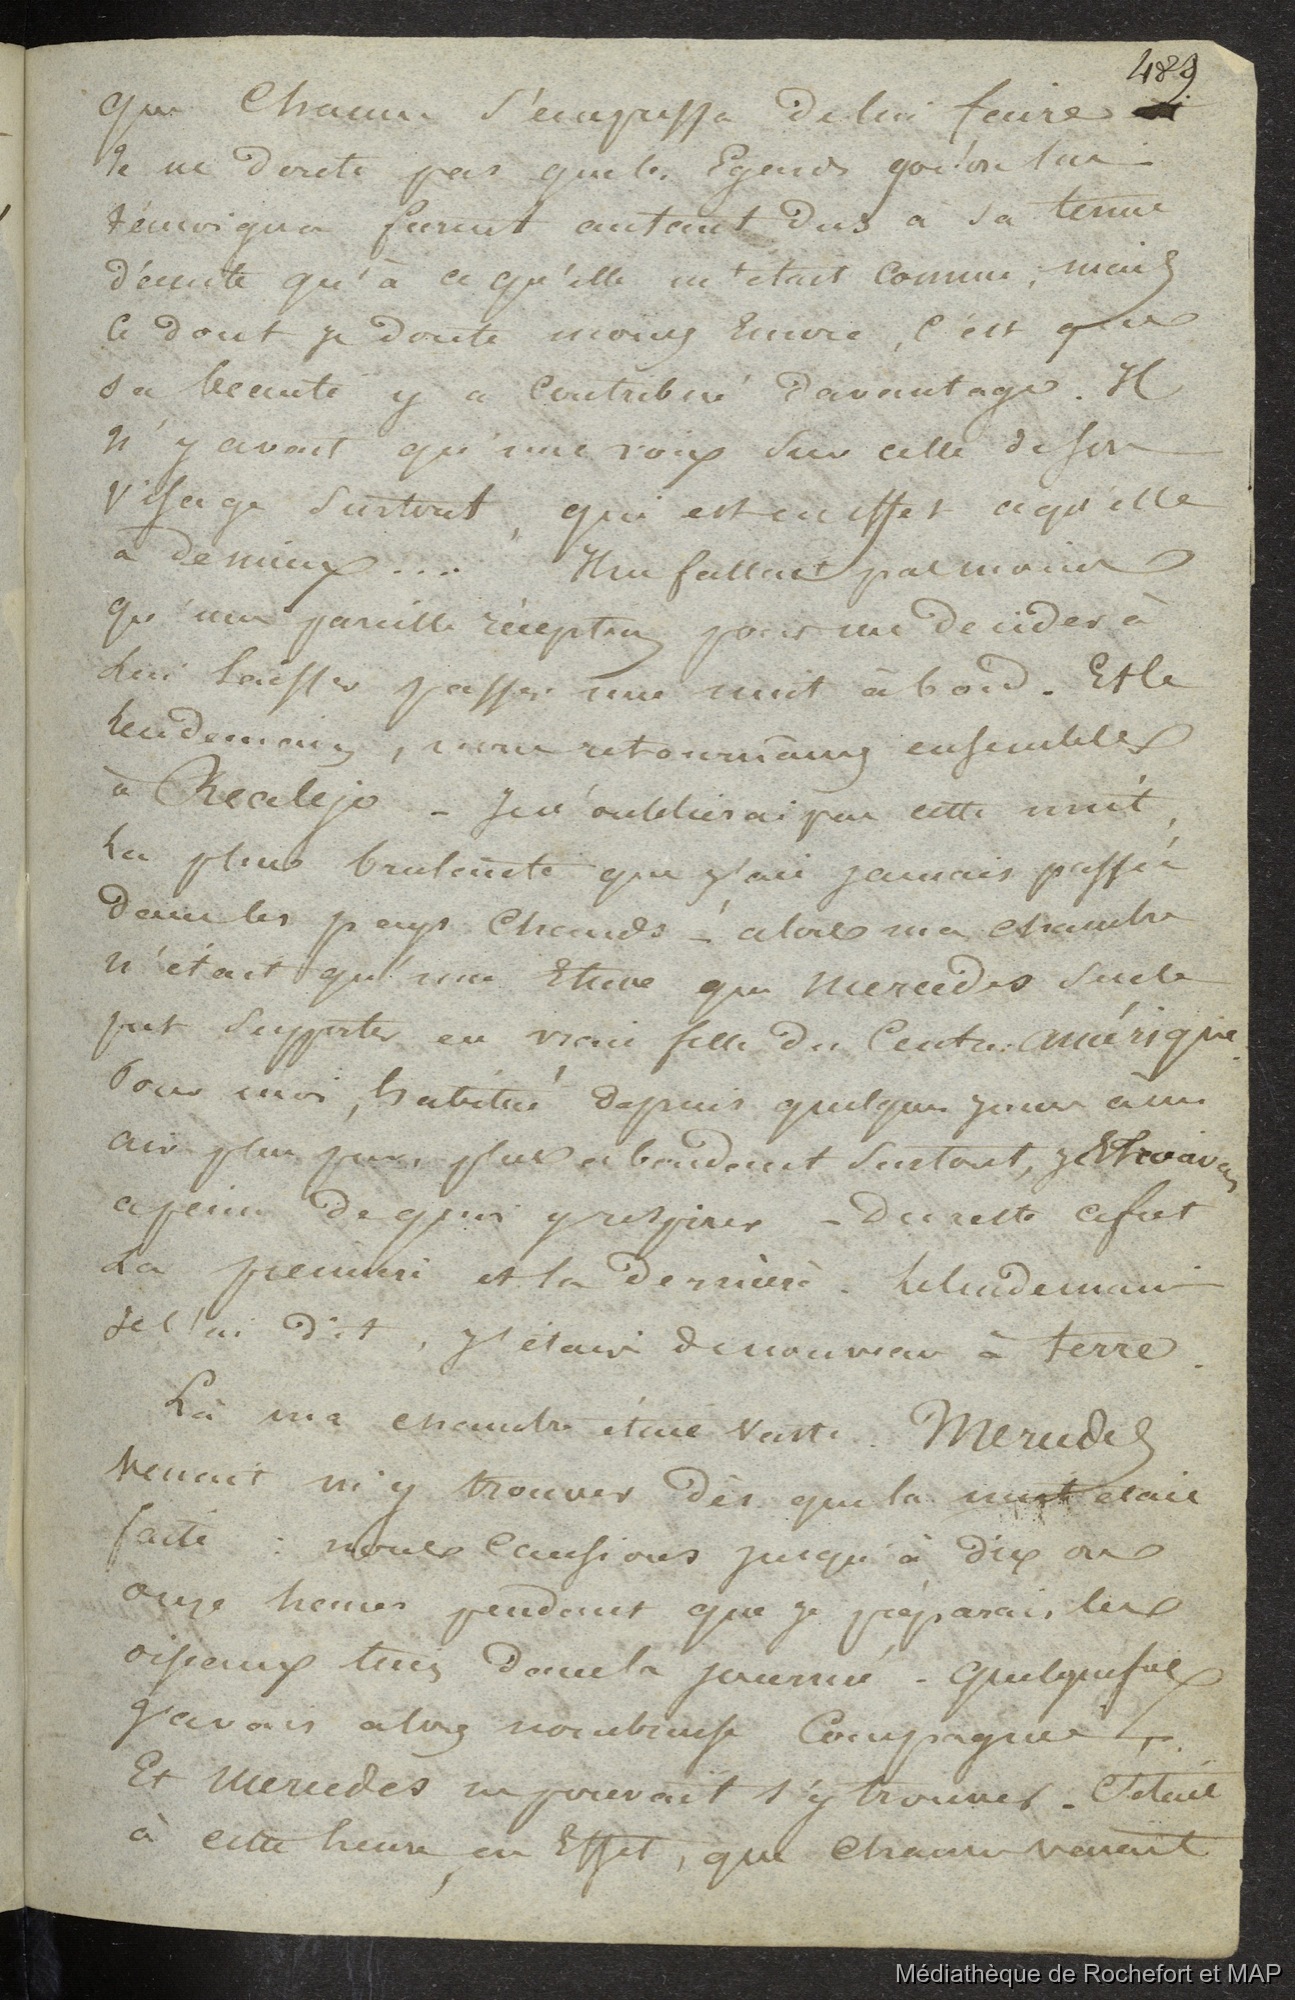 489
que Chacun s'empressa de lui faire
Je ne doute pas que les Egards qu'on lui
témoigna furent autant dus a sa tenue
décente qu'à ce qu'elle m'était connue; mais
Ce dont je doute moins Encore, C'est que
sa beauté y a Contribué davantage. Il
N'y avait qu'une voix sur celle de son
Visage surtout, qui est en effet ce qu'elle
a de mieux.... Il ne fallait pas moins
qu'une pareille réception pour me décider à
Lui laisser passer une nuit à bord. Et le
lendemain, nous retournâmes ensemble
à Realejo - Je n'oublierai pas cette nuit,
La plus brulante que j'ai jamais passée
dans les pays Chauds - alors ma chambre
n'était qu'une Etuve que Mercedes seule
put supporter en vraie fille du Centre-Amérique.
Pour moi, habitué depuis quelques jours à un
air plus pur, plus abondant surtout, je trouvais
a peine de quoi y respirer - Du reste ce fut
La premiere et la derniere. Le lendemain
Je l'ai dit, J'étais de nouveau à terre.
Là ma chambre était vaste. Mercedes
venait m'y trouver dès que la nuit était
faite : nous Causions jusqu'à dix ou
onze heures pendant que je préparais les
oiseaux tués dans la journée - quelquefois
J'avais alors nombreuse Compagnie
Et Mercedes ne pouvait s'y trouver. C'était
à cette heure, en Effet, que chacun venait
Médiathèque de Rochefort et MAP